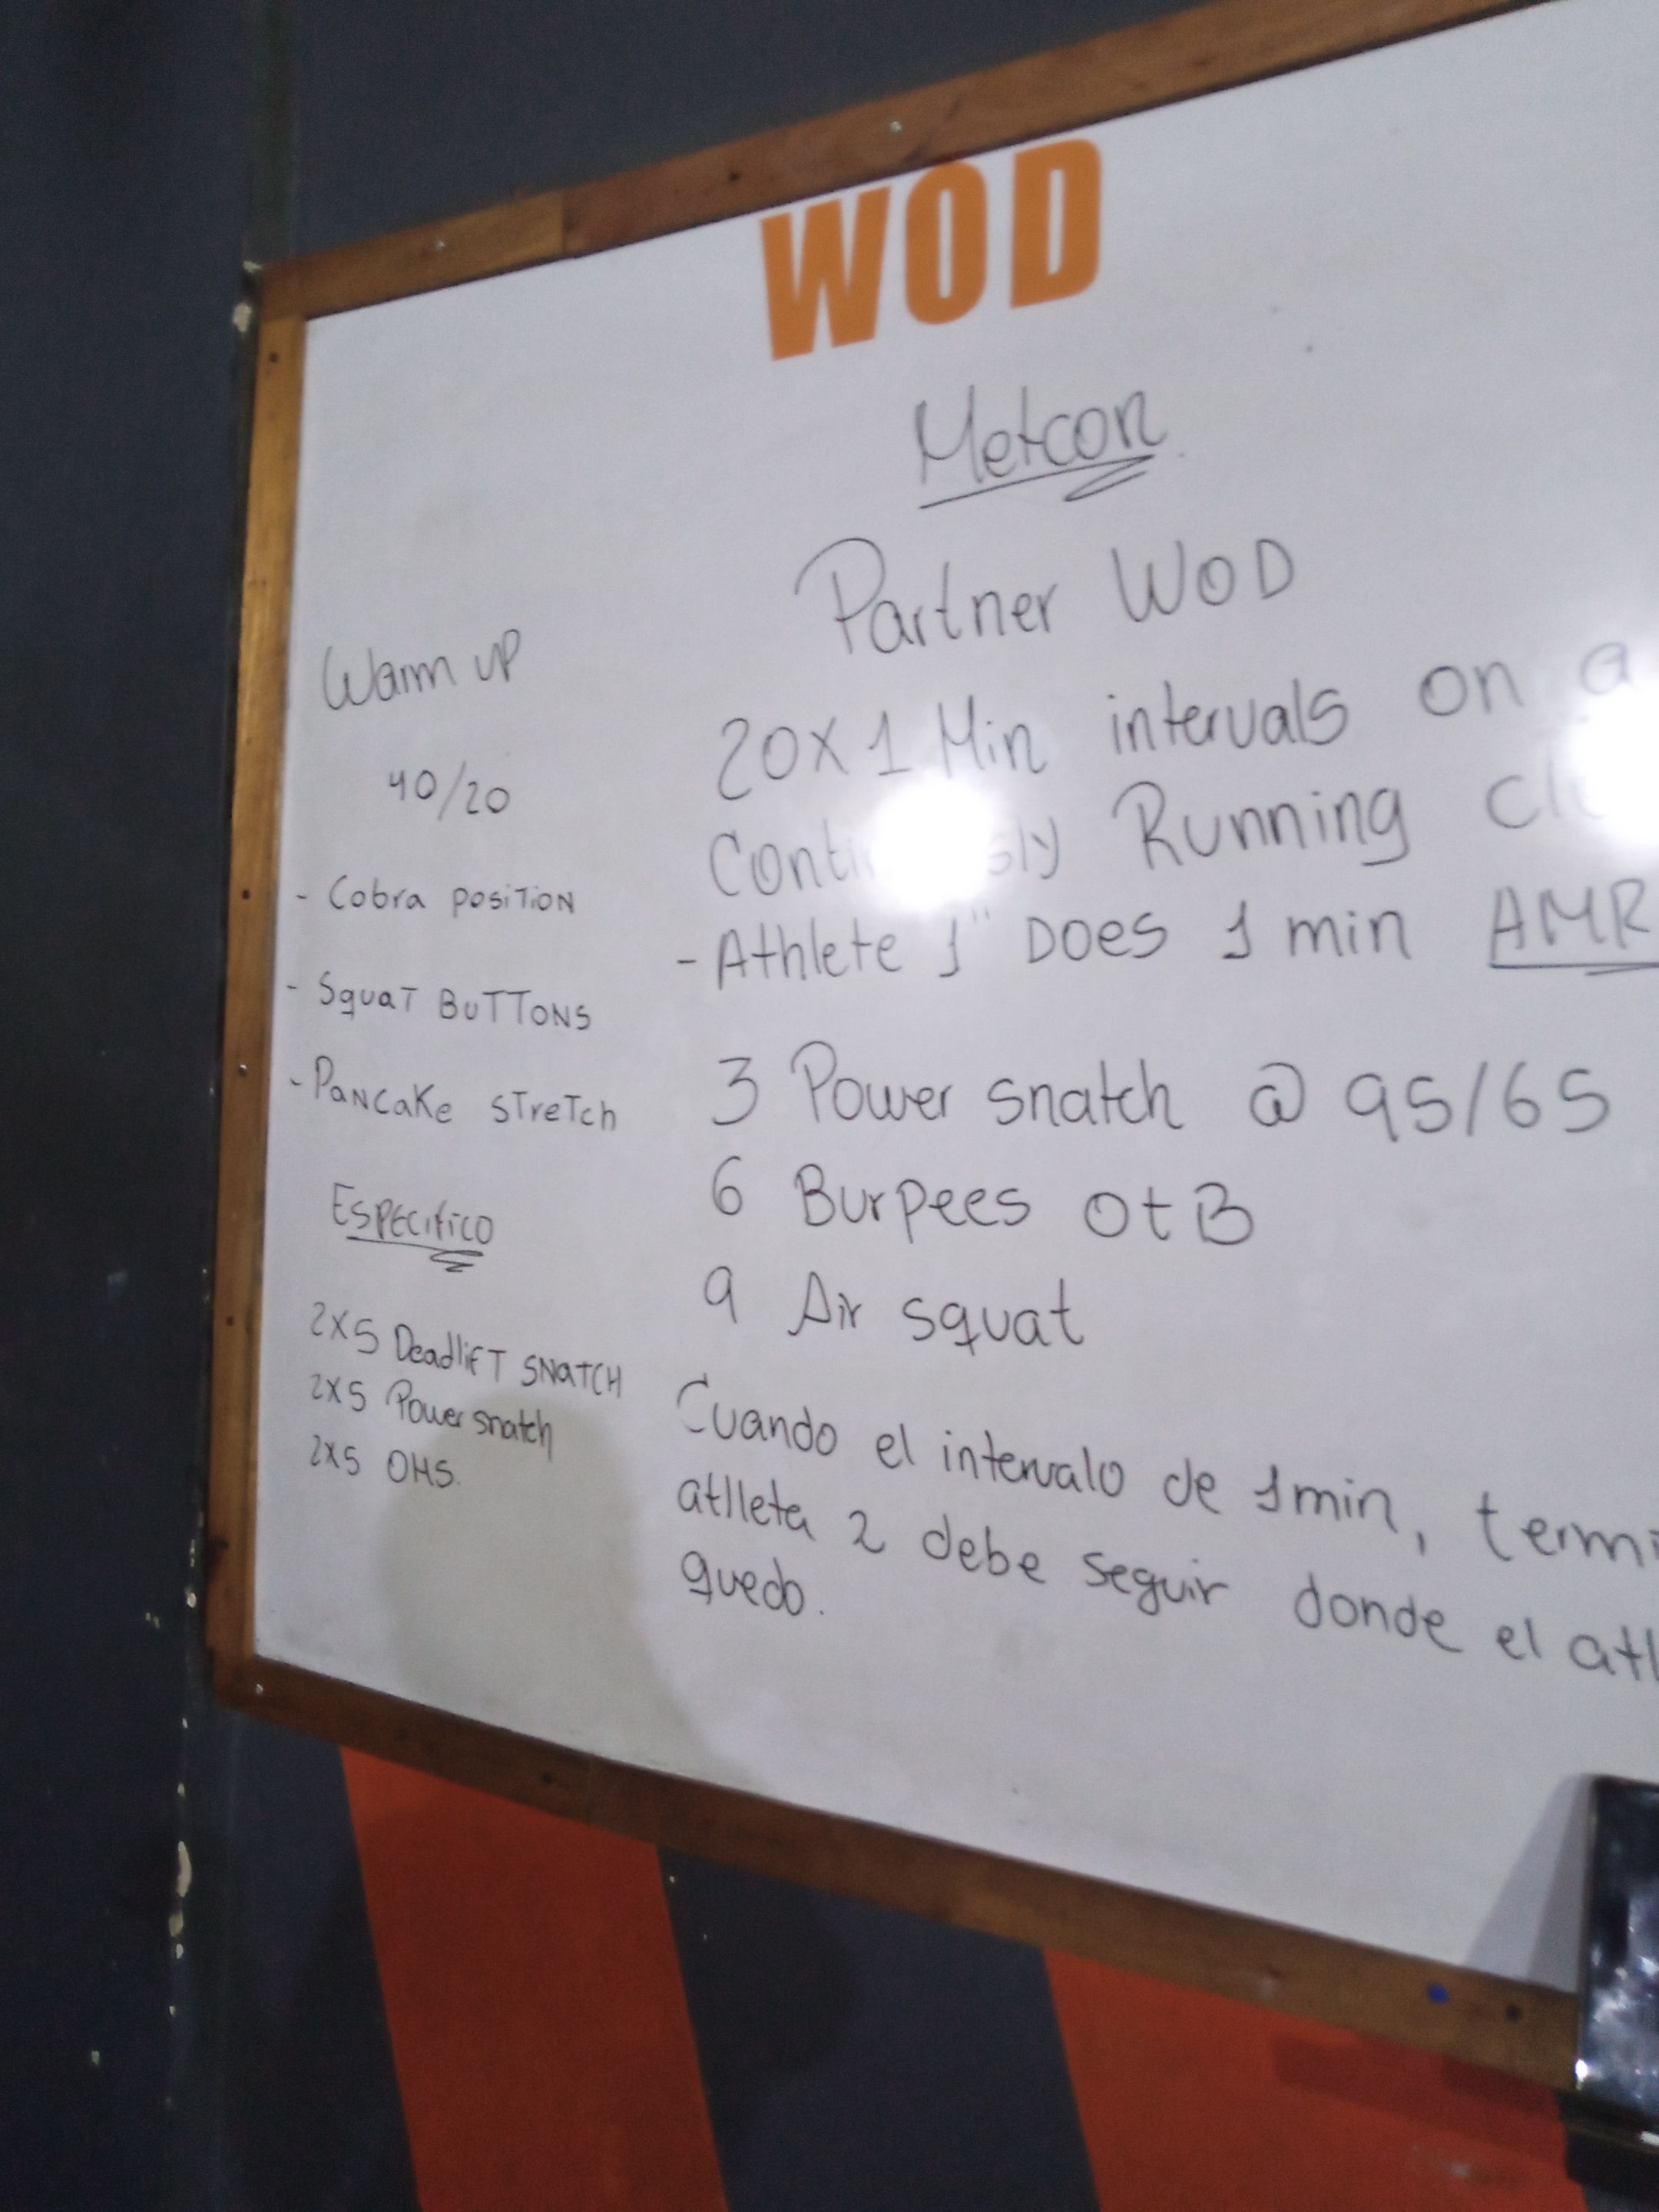 WOD
Metcon
Partner WOD
20x1 Min intervals on a
Running
- Athlete 1" Does 1 min AMR
3 Power snatch @ 95/65
6 Burpees OtB
9 Air squat
Cuando el intervalo de 1min, termi
atlleta 2 debe seguir donde el atl
quedo.
Warm up
40/20
- Cobra position
- Squat Buttons
- Pancake stretch
Especifico
2x5 Deadlift snatch
2x5 Power snatch
2x5 OHS.